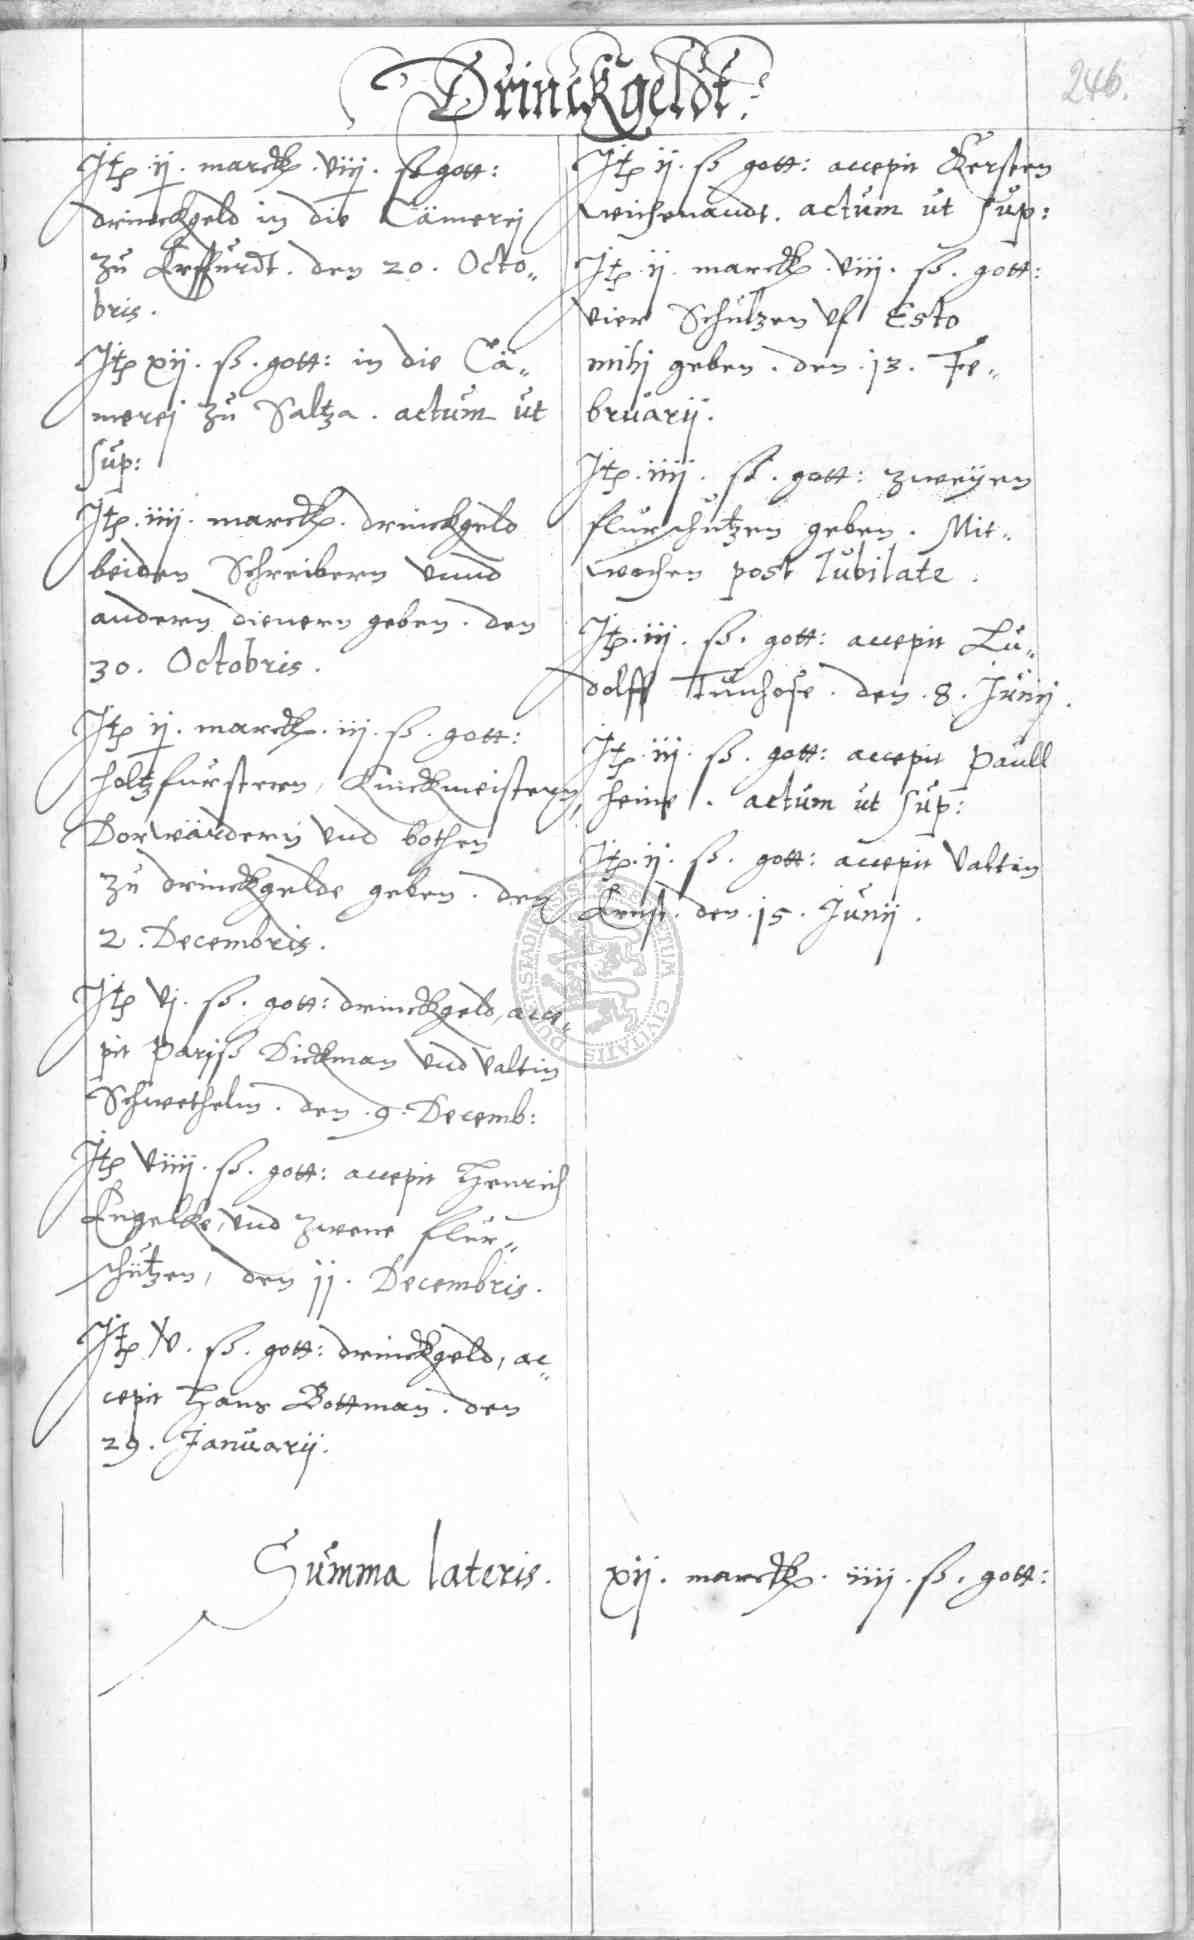 Drinckgeldt.
246.
Itp ij. marck. viij. ß gott:
drinckgeld in die Cämerej
zu Erffurdt. den 20. Octo„
bris.
Itp xij. ß. gott: in die Cä„
merej zu Saltza. actum ut
sup:
Itp. iiij. marck. drinckgeld
beiden Schreibern vnnd
andern dienern geben. den
30. Octobris.
Itp ij. marck. iij. ß. gott:
holtzfursteren, Kinckmeistern,
Dorwärdern vnd bothen
zu drinckgelde geben. den
2. Decembris.
Itp vj. ß. gott: drinckgeld, acce„
pit Pariß Dickman vnd Valtin
Schwethelm. den .9. Decemb:
Itp viiij. ß. gott: accepit Henrich
Engelke, vnd zwene flur„
schützen, den 11. Decembris.
Itp v. ß. gott: drinckgeld, ac„
cepit Hans Bottman. den
29. Januarij.
Itp ij. ß gott: accepit Kersten
Wichenandt. actum ut sup:
Itp. ij. marck. viij. ß. gott:
vier Schützen vf Esto
mihj geben. den .13. Fe„
bruarij.
Itp. iiij. ß. gott: zweyen
flurschutzen geben. Mit„
wochen post Iubilate.
Itp. iij. ß. gott: accepit Lu„
dolff Tunhose. den .8. Junij.
Itp. iij. ß. gott: accepit Paull
heine. actum ut sup:
Itp. ij. ß. gott: accepit Valtin
Ernst. den .15. Junij.
Summa lateris. xij. marck. iiij. ß. gott: